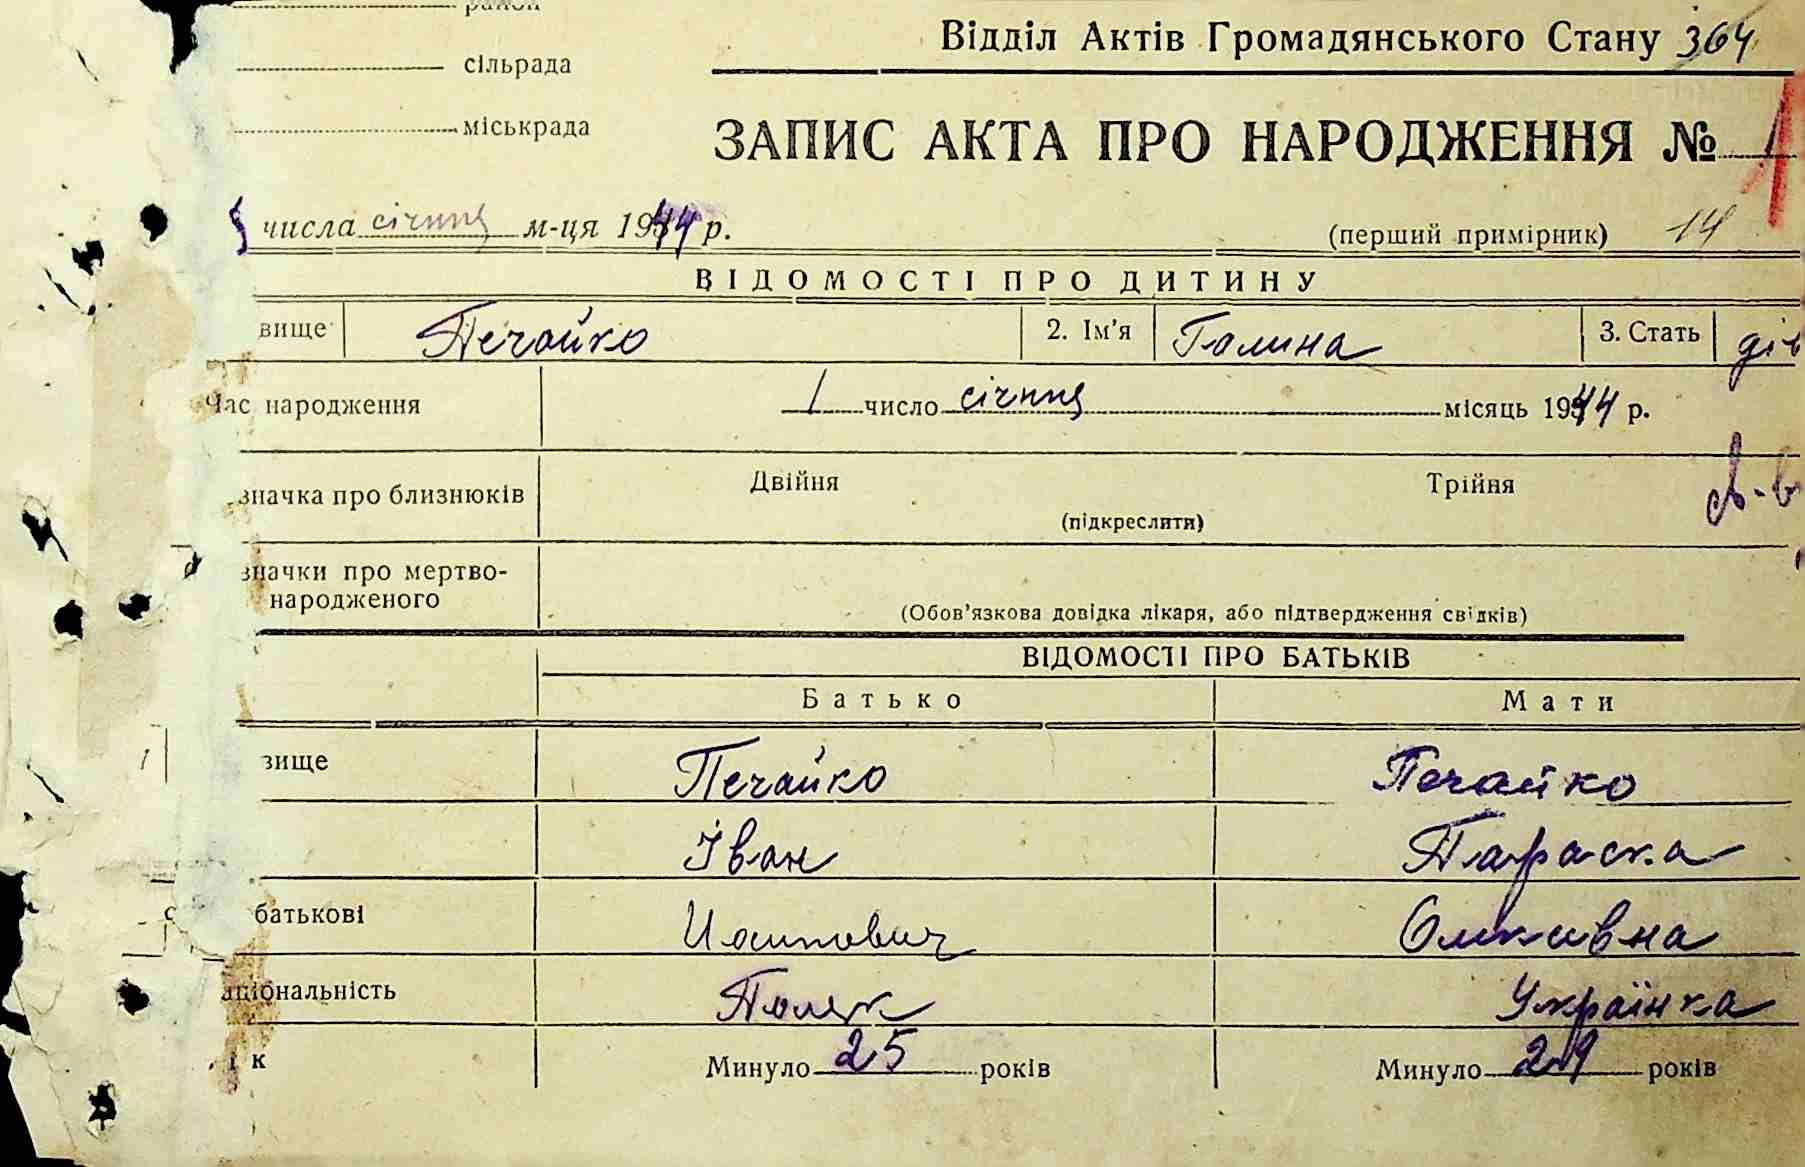 район
сільрада
міськрада
Відділ Актів Громадянського Стану 364
ЗАПИС АКТА ПРО НАРОДЖЕННЯ № 1
числа січня м-ця 1944 р.
(перший примірник) 14
ВІДОМОСТІ ПРО ДИТИНУ
вище Печайко 2. Ім'я Галина 3. Стать дів
Час народження 1 число січня місяць 1944 р.
значка про близнюків Двійня Трійня
(підкреслити)
значки про мертво-
народженого
(Обов'язкова довідка лікаря, або підтвердження свідків)
ВІДОМОСТІ ПРО БАТЬКІВ
Батько Мати
1 звище Печайко Печайко
Іван Параска
батькові Иосипович Олексивна
аціональність Поляк Українка
ік Минуло 25 років Минуло 29 років